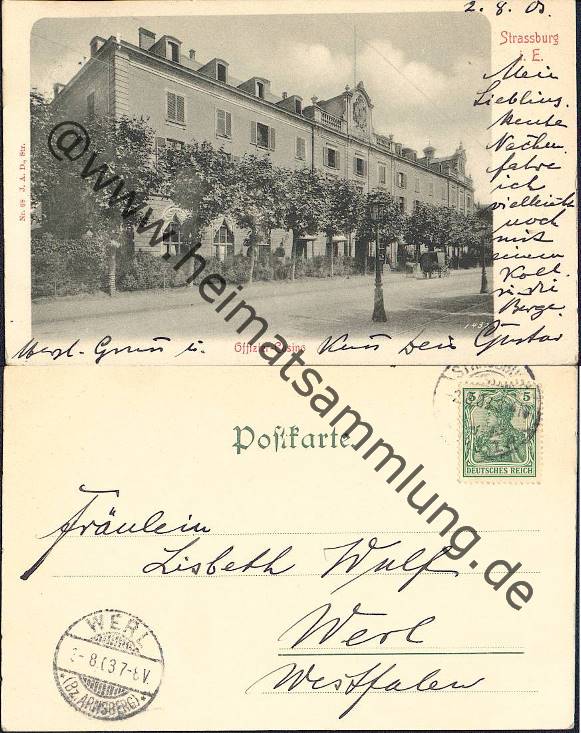 2. 8. 03.
Strassburg
i. E.
Mein
Liebling.
heute
Nachm.
fahre
ich
vielleicht
noch
mit
einem
Koll.
in die
Berge.
Herzl. Gruss u. Kuss Dein Gustav
Offizier-Casino
Nr. 68 J. A. D., Str.
@www.heimatsammlung.de
Postkarte
5 5
DEUTSCHES REICH
Fräulein
Lisbeth Wulf
Werl
Westfalen
WERL
3-8.03.7-8V.
*(BZ.ARNSBERG)*